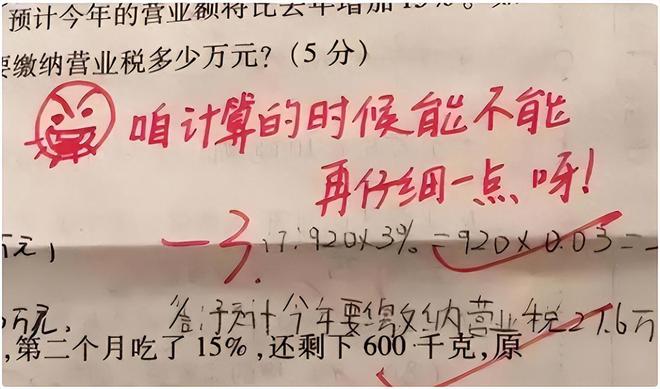 预计今年的营业额将比去年增加15%。
要缴纳营业税多少万元?(5分)
咱计算的时候能不能
再仔细一点呀!
万元)
-3. 920×3%=920×0.03=
万元. 答:预计今年要缴纳营业税27.6万
,第二个月吃了15%,还剩下600千克,原